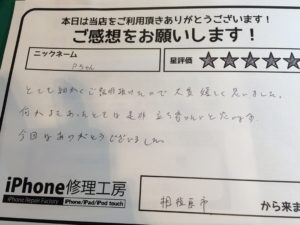 本日は当店をご利用頂きありがとうございます!
ご感想をお願いします!
ニックネーム
Pちゃん
星評価
★★★★★
とても細かくご説明頂けたので大変嬉しく思いました。
何かまたあったときは是非立ち寄りたいと
今回はありがとうございました
iPhone修理工房
iPhone Repair Factory
iPhone/iPad/iPod touch
相模原市
から来ま